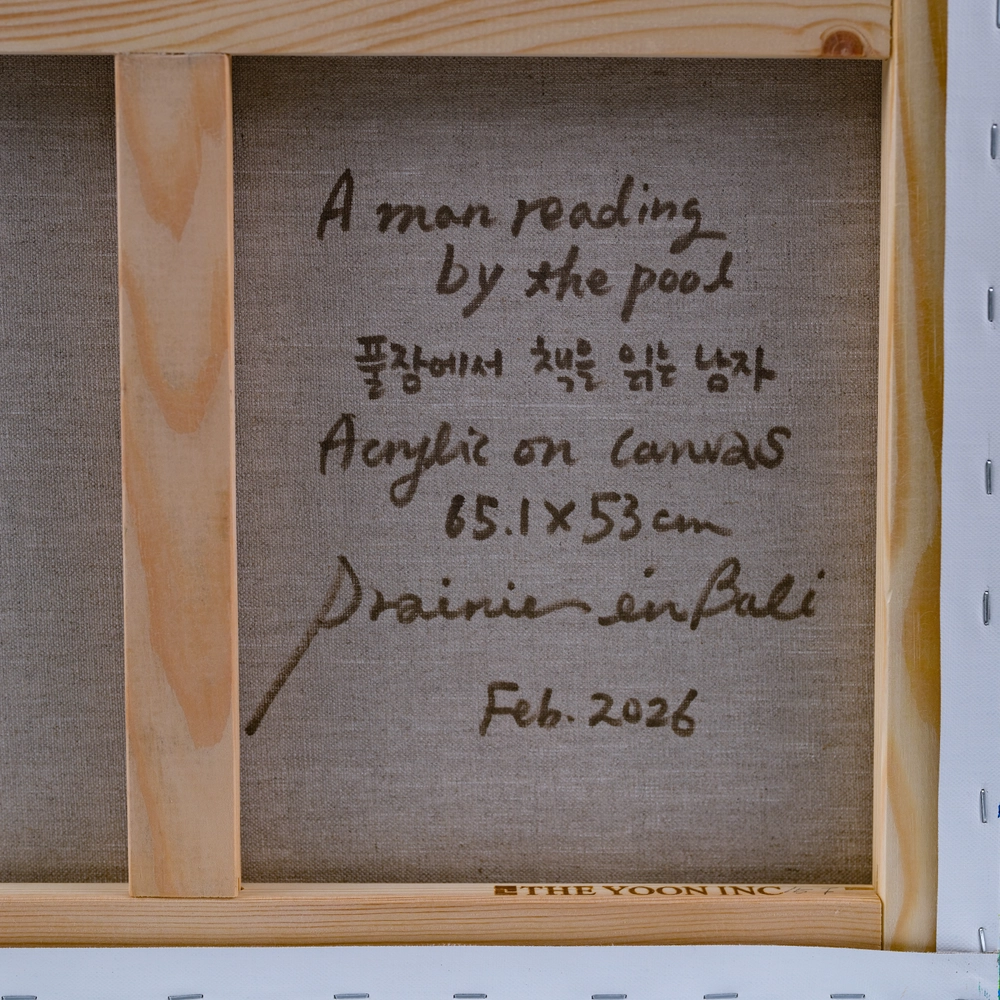 A man reading
by the pool
풀장에서 책을 읽는 남자
Acrylic on canvas
65.1 x 53 cm
Prairie en Bali
Feb. 2026
THE YOON INC